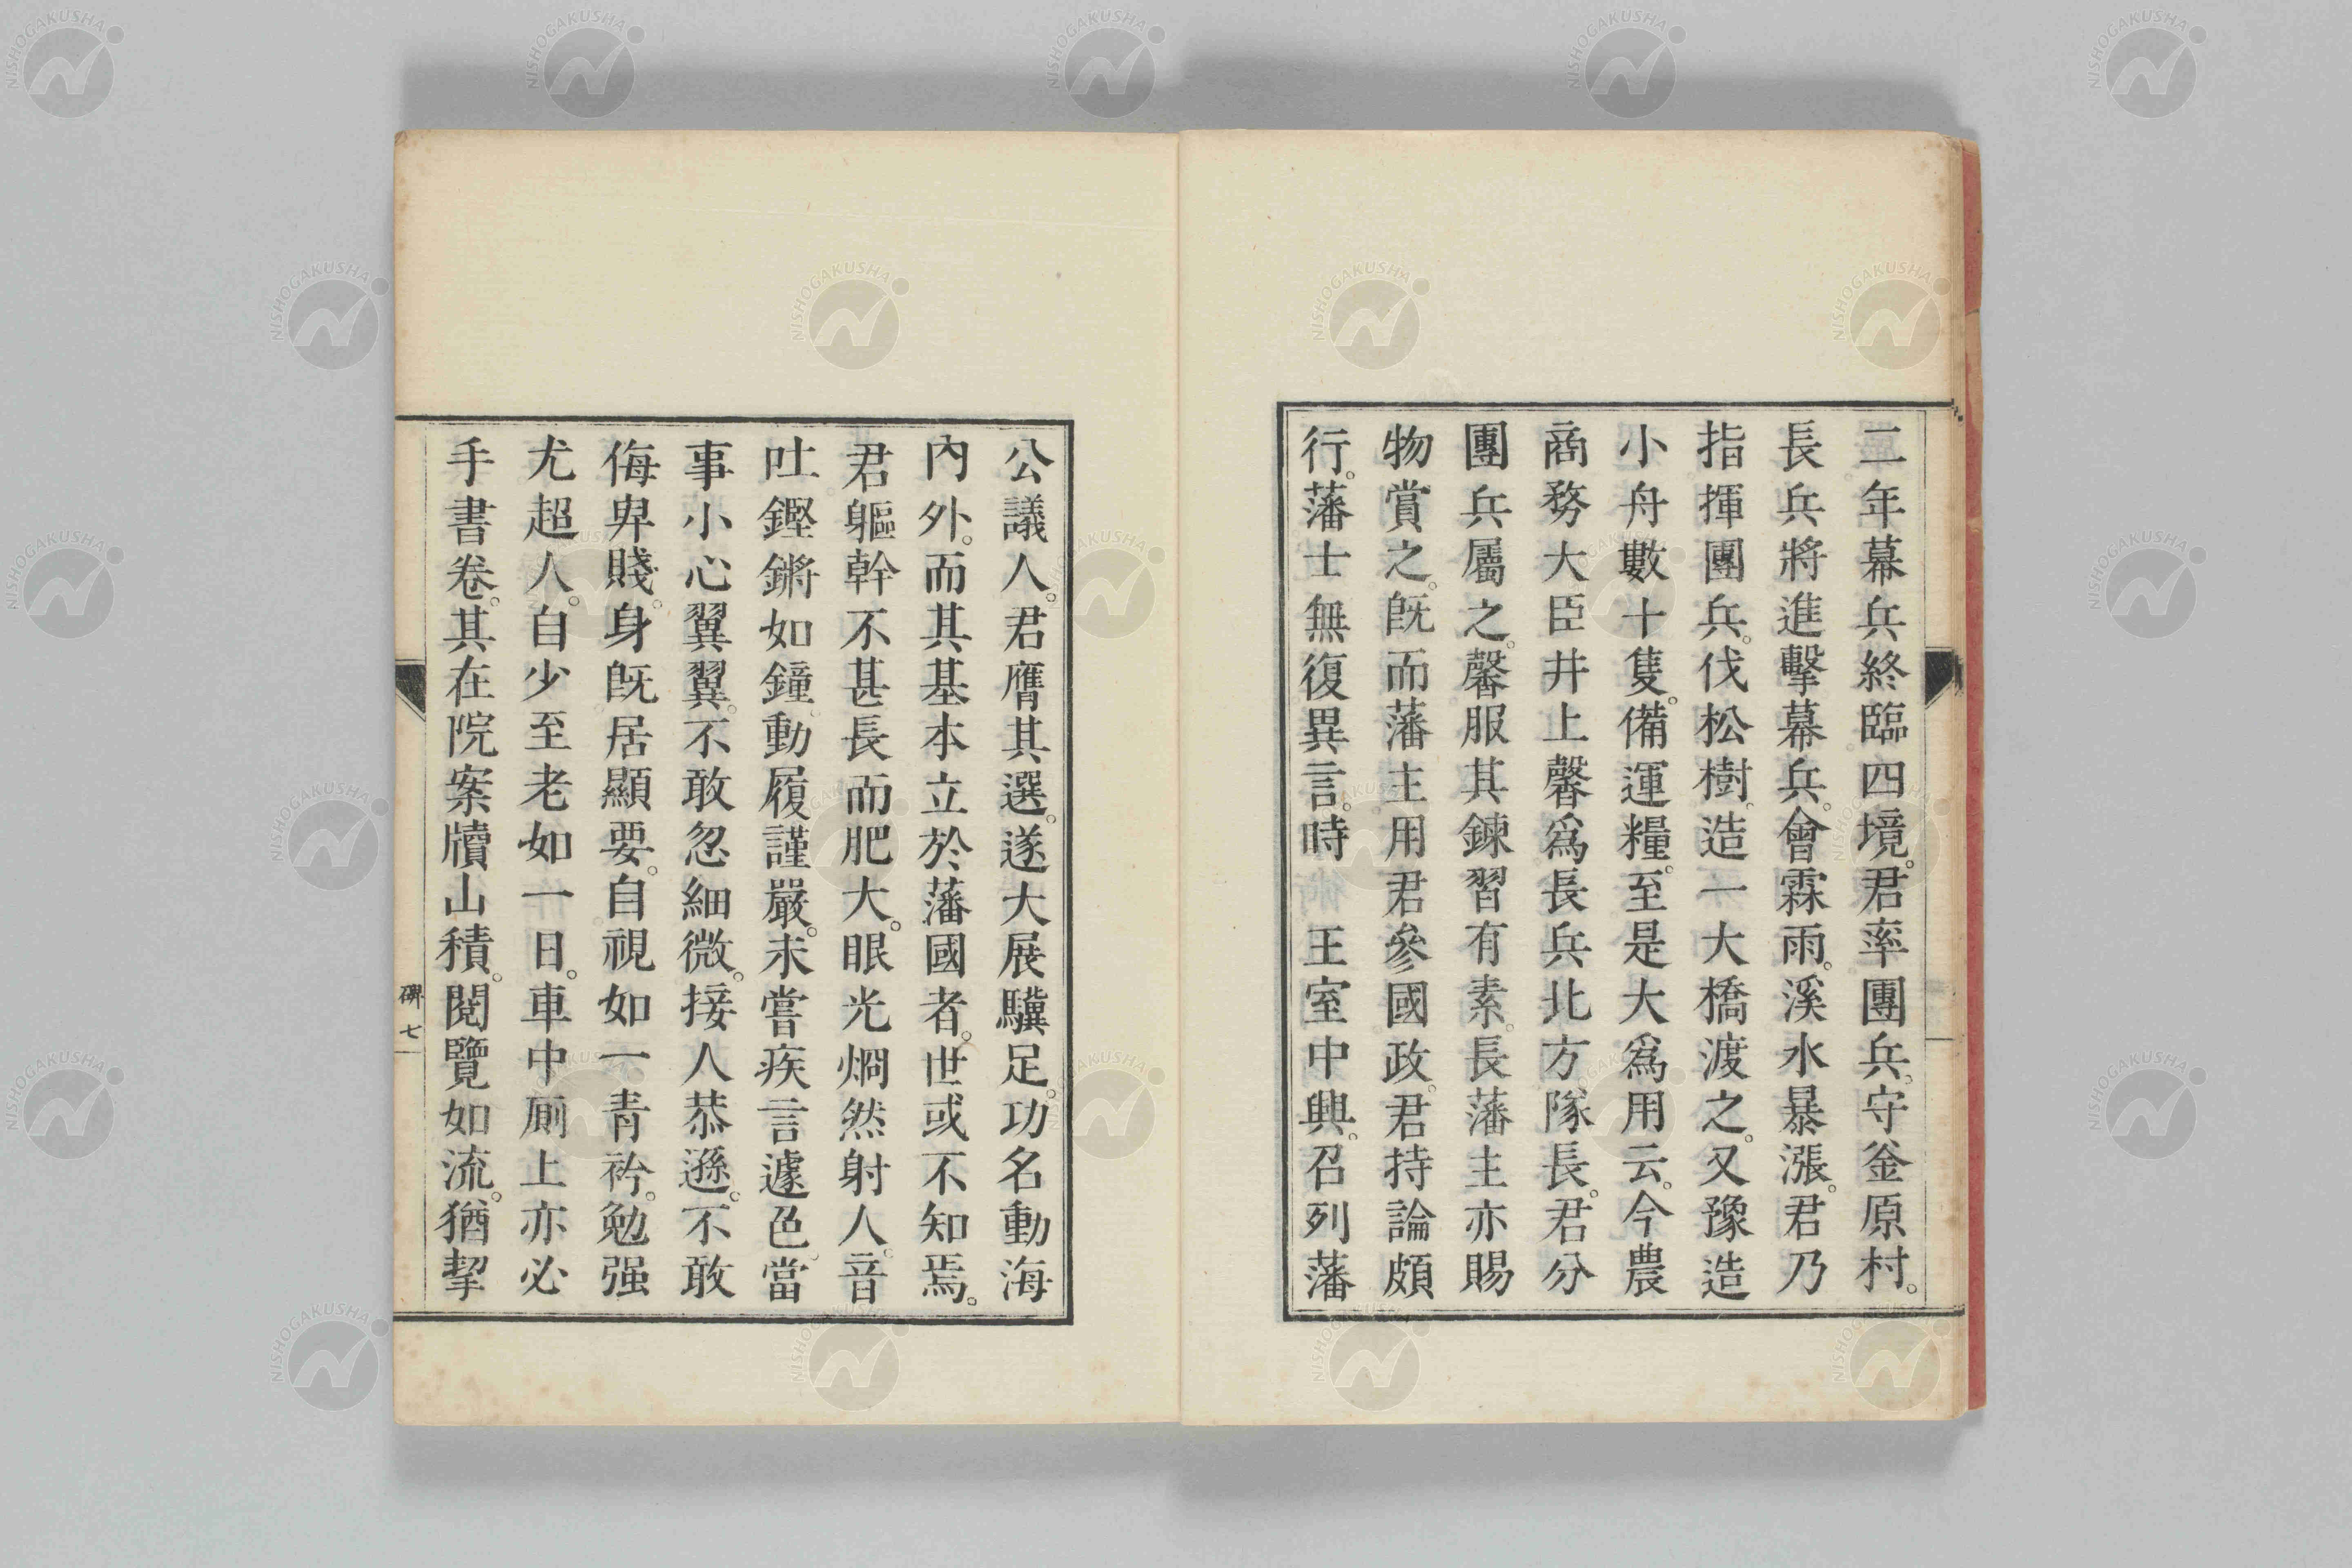 二年幕兵終臨四境。君率團兵。守釜原村。
長兵將進擊幕兵。會霖雨。溪水暴漲。君乃
指揮團兵。伐松樹。造一大橋渡之。又豫造
小舟數十隻。備運糧。至是大爲用云。今農
商務大臣井上馨爲長兵北方隊長。君分
團兵屬之。馨服其鍊習有素。長藩主亦賜
物賞之。既而藩主用君參國政。君持論頗
行。藩士無復異言。時　王室中興。召列藩
公議人。君膺其選。遂大展驥足。功名動海
內外。而其基本立於藩國者。世或不知焉。
君軀幹不甚長而肥大。眼光烱然射人。音
吐鏗鏘如鐘。動履謹嚴。未嘗疾言遽色。當
事小心翼翼。不敢忽細微。接人恭遜。不敢
侮卑賤。身既居顯要。自視如一青衿。勉强
尤超人。自少至老如一日。車中厠上亦必
手書卷。其在院案牘山積。閱覽如流。猶挈
碑七
NISHOGAKUSHA